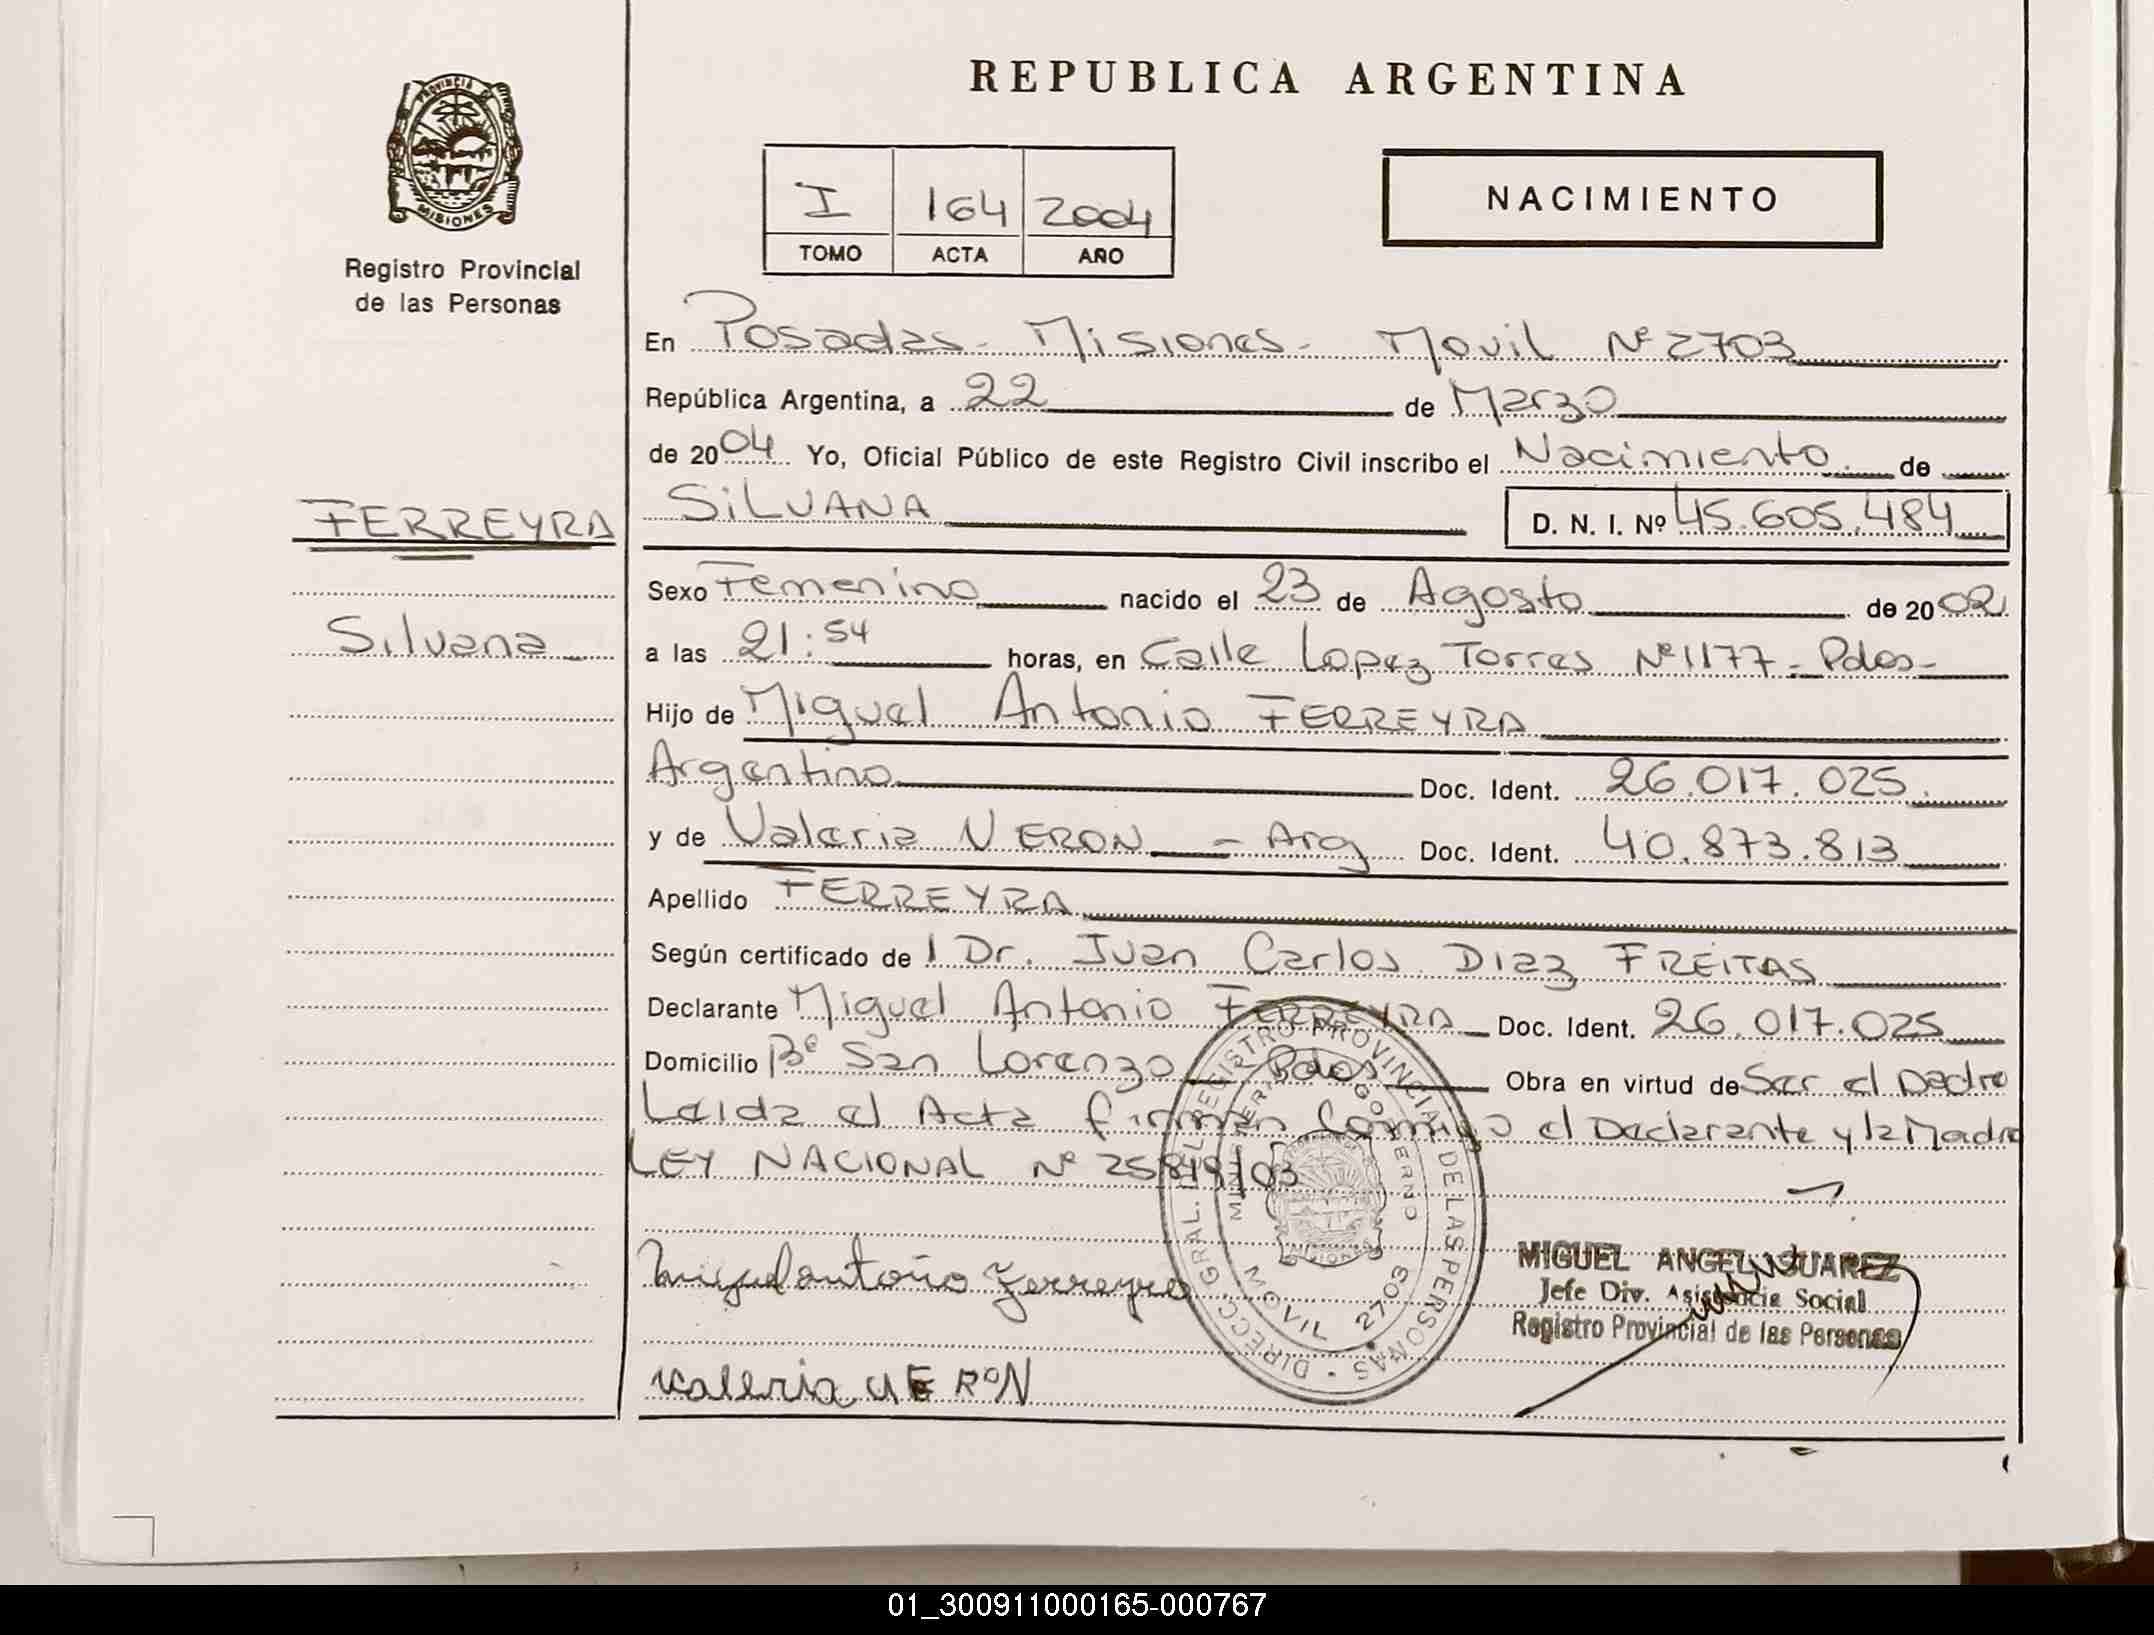 PROVINCIA DE
MISIONES
Registro Provincial
de las Personas
REPUBLICA ARGENTINA
I 164 2004
TOMO ACTA AÑO
NACIMIENTO
En Posadas - Misiones - Movil Nº 2703
República Argentina, a 22 de Marzo
de 2004 Yo, Oficial Público de este Registro Civil inscribo el Nacimiento de
FERREYRA
Silvana
SILVANA D. N. I. Nº 45.605.484
Sexo Femenino nacido el 23 de Agosto de 2002
a las 21:54 horas, en Calle Lopez Torres Nº 1177 - Pdas -
Hijo de Miguel Antonio FERREYRA
Argentino Doc. Ident. 26.017.025
y de Valeria VERON - Arg Doc. Ident. 40.873.813
Apellido FERREYRA
Según certificado de l Dr. Juan Carlos Diaz FREITAS
Declarante Miguel Antonio FERREYRA Doc. Ident. 26.017.025
Domicilio Bº San Lorenzo - Pdas Obra en virtud de Ser el Padre
Leida el Acta firman Conmigo el Declarante y la Madre
LEY NACIONAL Nº 25819/03
Miguel antonio Ferreyra
Valeria VERON
DIRECC. GRAL. DEL REGISTRO PROVINCIAL DE LAS PERSONAS
MINISTERIO GOBIERNO
MOVIL 2703
MIGUEL ANGEL SUAREZ
Jefe Div. Asistencia Social
Registro Provincial de las Personas
01_300911000165-000767